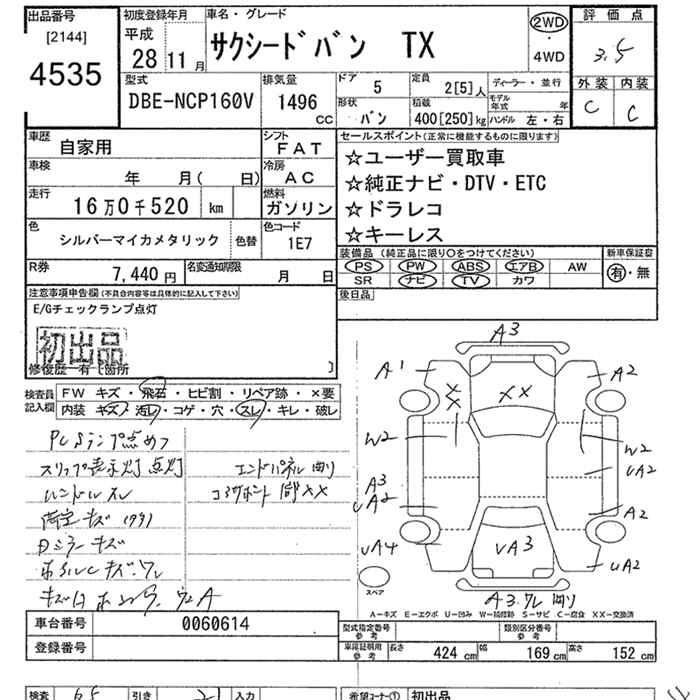 出品番号
[2144]
4535
初度登録年月
平成
28 11月
車名・グレード
サクシードバン TX
2WD
・
4WD
評価点
3.5
外装 内装
C C
型式
DBE-NCP160V
排気量
1496 cc
ドア 5
定員 2[5]人
ディーラー・並行
モデル年式 年
形状 バン
積載 400[250]kg
ハンドル 左・右
車歴 自家用
シフト FAT
車検 年 月( 日)
冷房 AC
走行 16万0千520 km
燃料 ガソリン
色 シルバーマイカメタリック 色替
色コード 1E7
R券 7,440円
名変通知期限 月 日
セールスポイント(正常に機能するものに限ります)
☆ユーザー買取車
☆純正ナビ・DTV・ETC
☆ドラレコ
☆キーレス
装備品(純正品に限り○をつけてください)
新車保証書
PS PW ABS エアB AW
有・無
SR ナビ TV カワ
後日品
注意事項申告欄(不具合内容等は具体的に記入して下さい)
E/Gチェックランプ点灯
初出品
修復歴－有〔箇所 〕
検査員記入欄
FW キズ・飛石・ヒビ割・リペア跡・×要
内装 キズ・汚レ・コゲ・穴・スレ・キレ・破レ
スリップ表示灯 点灯
ハンドルスレ
エンドパネル
キズ
A3
A1
A2
XX
XX
W2
W2
UA2
A3
UA2
A2
UA4
UA3
UA2
スペア
A3
A－キズ E－エクボ U－凹み W－補修跡 S－サビ C－腐食 XX－交換済
車台番号 0060614
登録番号
型式指定番号 参考
類別区分番号 参考
車庫証明用 参考
長さ 424 cm
幅 169 cm
高さ 152 cm
検査
引き
入力
希望コーナー① 初出品